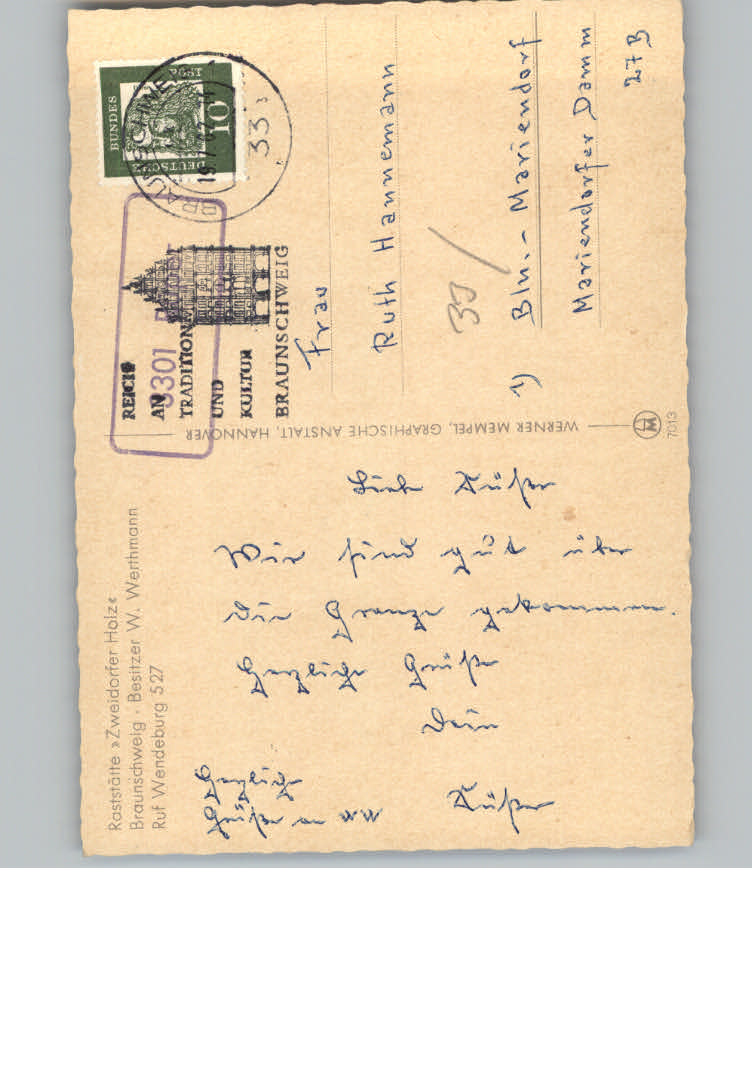 Raststätte »Zweidorfer Holz«
Braunschweig · Besitzer W. Werthmann
Ruf Wendeburg 527
Liebe
Wir sind gut über
die Grenze gekommen.
Herzliche Grüße
Dein
Herzliche
Grüße an
WERNER MEMPEL, GRAPHISCHE ANSTALT, HANNOVER
7013
3301
REICH
AN
TRADITION
UND
KULTUR
BRAUNSCHWEIG
BRAUNSCHWEIG
33
DEUTSCHE
BUNDES
POST
10
Frau
Ruth Hannemann
33
1) Bln.- Mariendorf
Mariendorfer Damm
27B